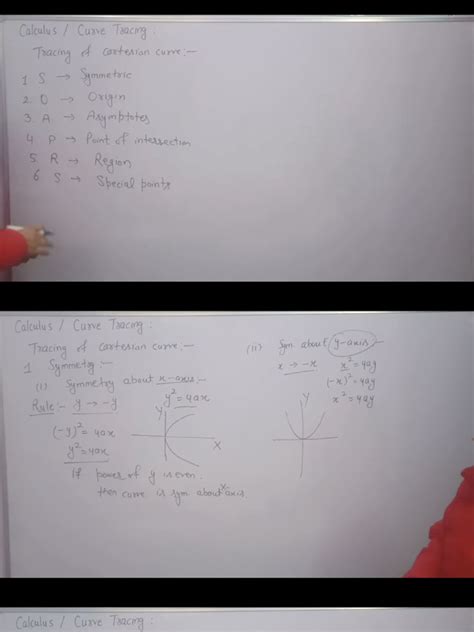 Calculus / Curve Tracing :
Tracing of cartesian curve :-
1 S → Symmetric
2 O → Origin
3 A → Asymptotes
4 P → Point of intersection
5 R → Region
6 S → Special points
Calculus / Curve Tracing :
Tracing of cartesian curve :-
1 Symmetry :-
(i) Symmetry about x-axis :-
Rule :- y → -y
y² = 4ax
(-y)² = 4ax
y² = 4ax
Y
X
If power of y is even
then curve is sym about x-axis
(ii) Sym about y-axis :-
x → -x
x² = 4ay
(-x)² = 4ay
x² = 4ay
Y
Calculus / Curve Tracing :